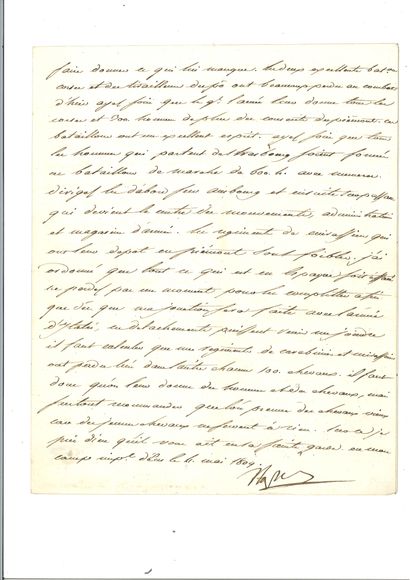 faire donner ce qui lui manque. les deux excellents bat.on
corse et du tirailleurs du pô ont beaucoup perdu au combat
d'hier ayez soin que le g.l Lamée leur donne tous les
corses et 200 hommes de plus des conscrits du piémont. ces
bataillons ont un excellent esprit. ayez soin que tous
les hommes qui partent de Strasbourg soient formés
en bataillons de marche de 600 h. avec numéros.
dirigez les d'abord sur augsbourg et ensuite sur passau
qui devient le centre des mouvements, administration
et magasin d'armée. les régiments de cuirassiers qui
ont leur dépôt en piémont sont faibles. j'ai
ordonné que tout ce qui est en
ne perdez pas un moment pour les compléter afin
que dès que ma jonction sera faite avec l'armée
d'Italie, ces détachements puissent venir me joindre
il faut calculer que ces régiments de carabiniers et cuirassiers
ont perdu tués dans l'autre chacun 100. chevaux. il faut
donc qu'on leur donne des hommes et des chevaux, mais
surtout recommandez que l'on prenne des chevaux vieux
car des jeunes chevaux ne servent à rien. sur ce je
prie dieu qu'il vous ait en sa sainte garde. en mon
camp imp.al d'Ens le 4. mai 1809.
Nap